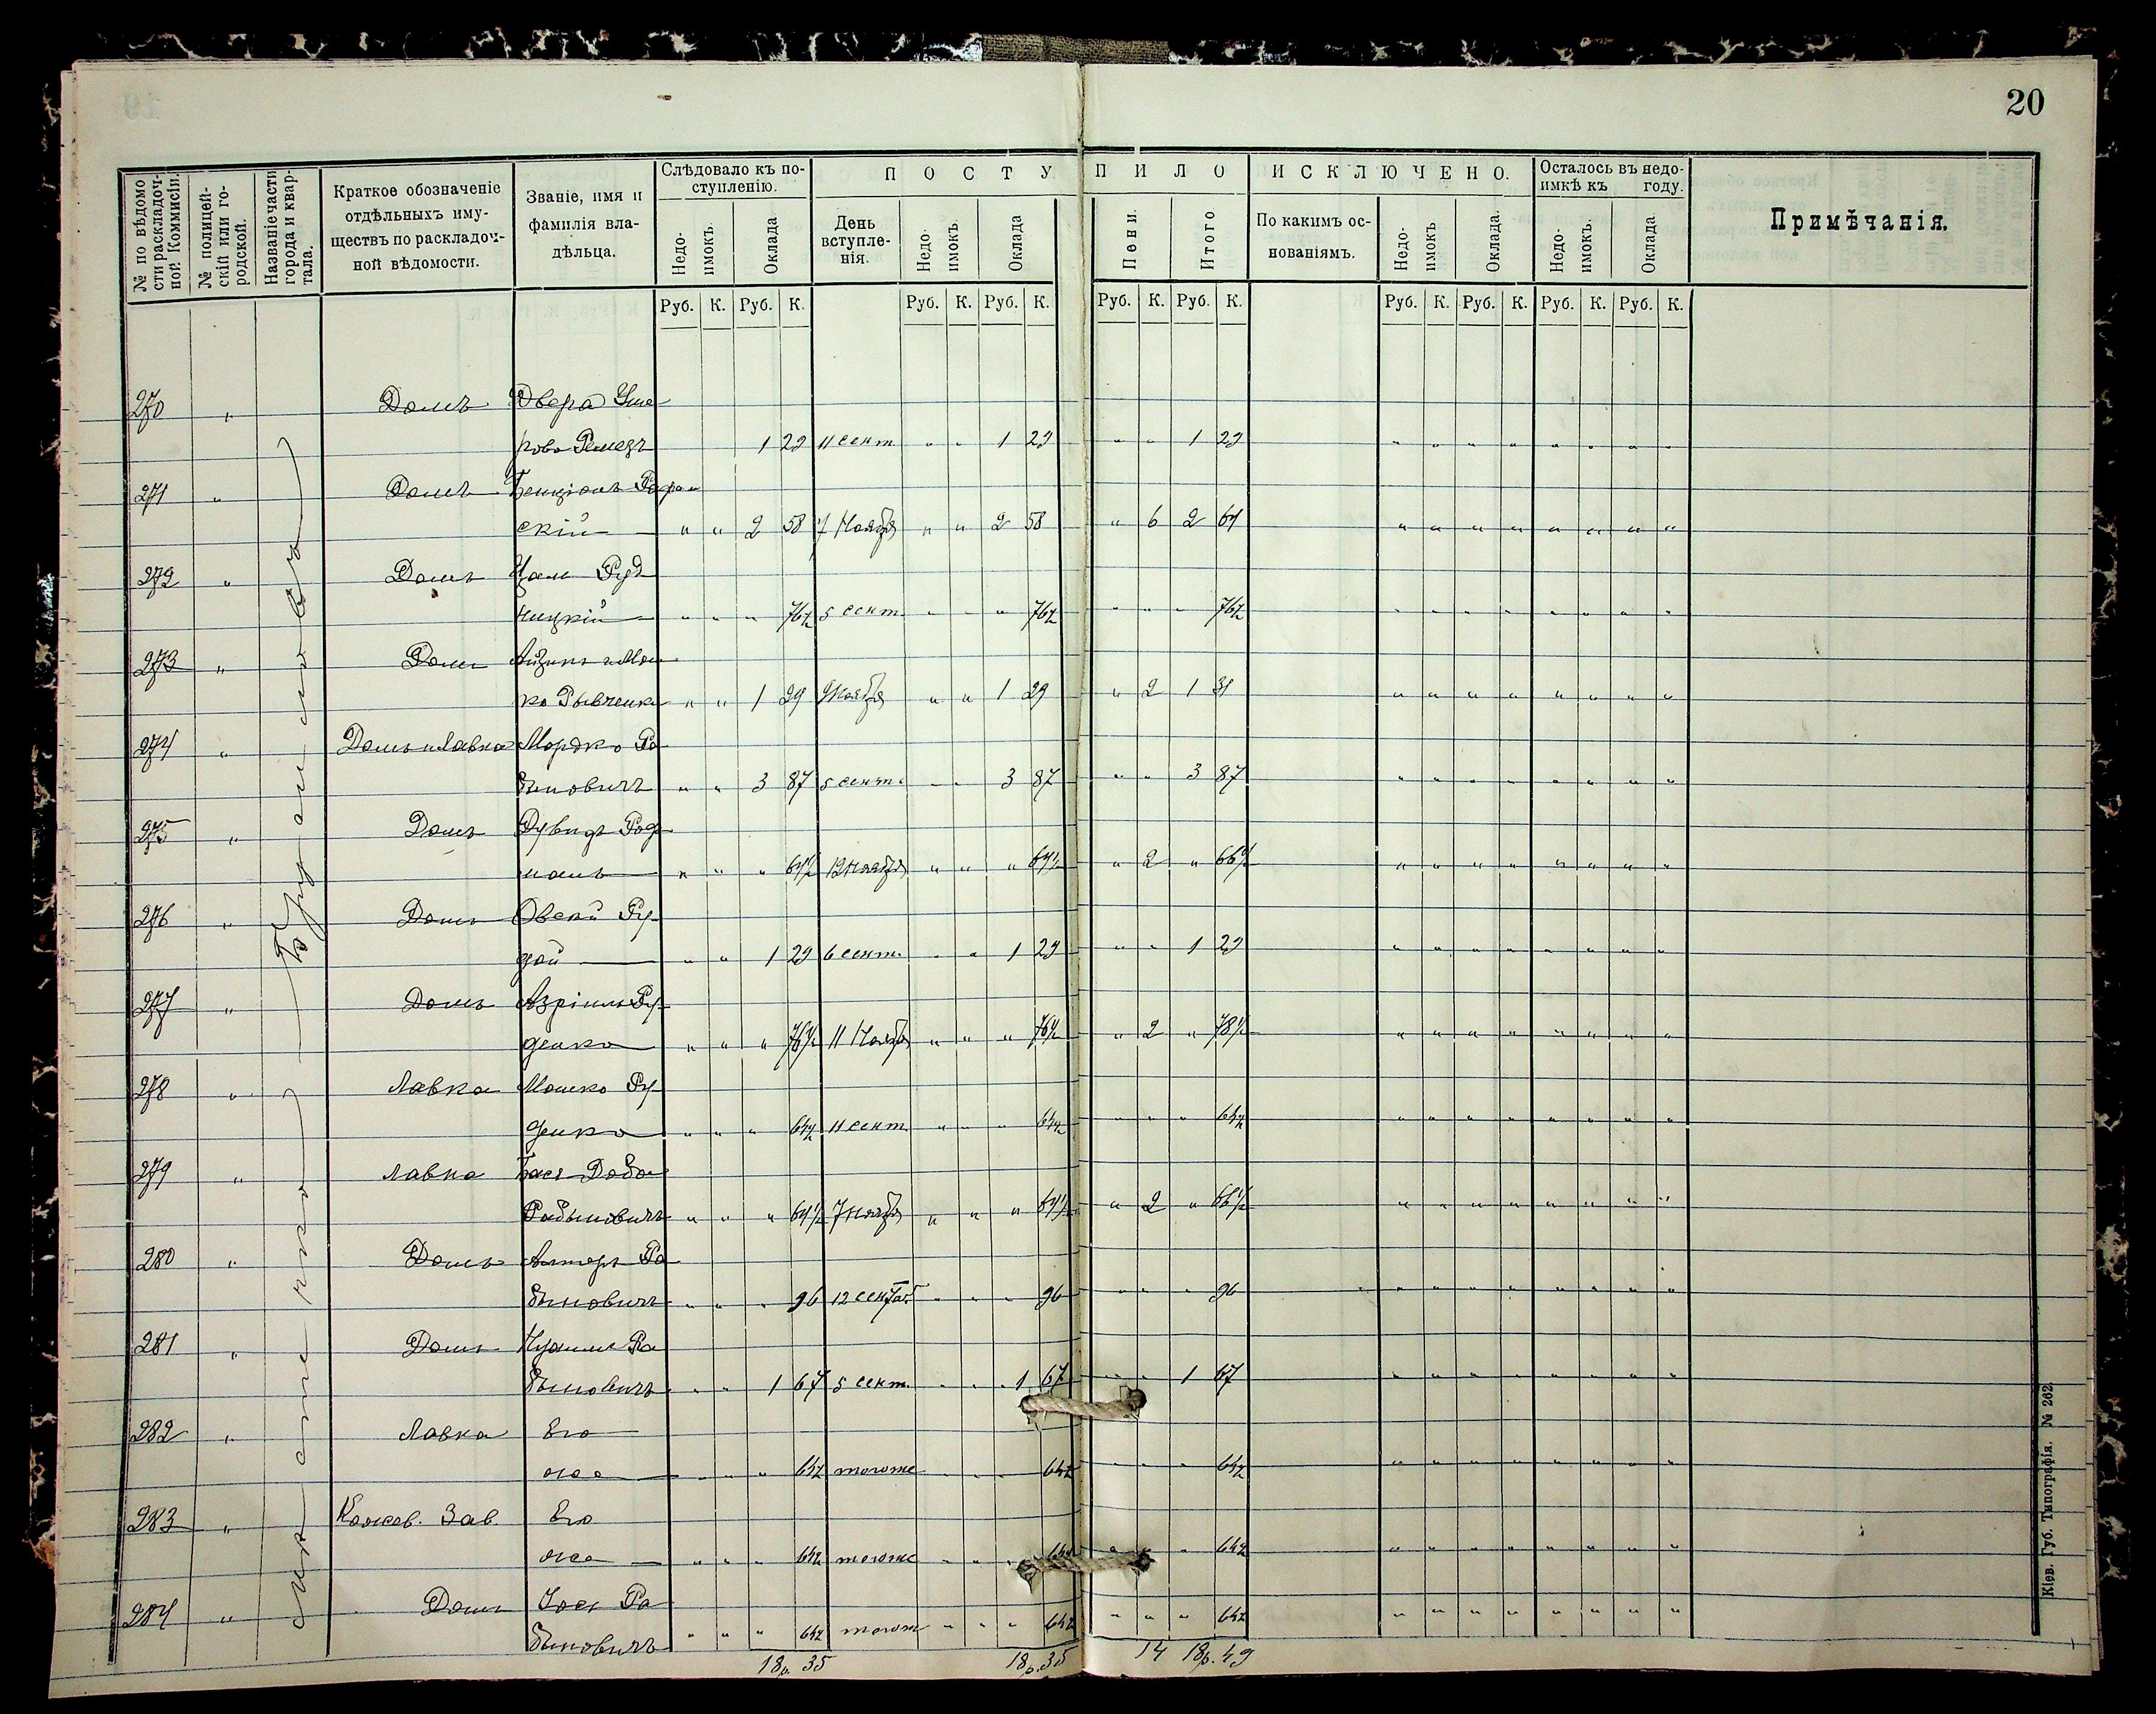 20
№ по вѣдомости раскладочной Коммисіи.
№ полицейскій или городской.
Названіе части города и квартала.
Краткое обозначеніе отдѣльныхъ имуществъ по раскладочной вѣдомости.
Званіе, имя и фамилія владѣльца.
Слѣдовало къ поступленію.
Недоимокъ.
Оклада
ПОСТУПИЛО
День вступленія.
Недоимокъ.
Оклада
Пени.
Итого
ИСКЛЮЧЕНО.
По какимъ основаніямъ.
Недоимокъ
Оклада.
Осталось въ недоимкѣ къ году.
Недоимокъ.
Оклада.
Примѣчанія.
Руб. К. Руб. К. Руб. К. Руб. К. Руб. К. Руб. К. Руб. К. Руб. К. Руб. К. Руб. К.
270 " Домъ Двера
1 29 11 сент. " " 1 29 " " 1 29 " " " " " " " "
271 " Домъ Бенціонъ
скій " " 2 58 7 Ноября " " 2 58 " 6 2 64 " " " " " " " "
272 " Домъ Руд
ницкій " " " 76½ 5 сент. " " " 76½ " " " 76½ " " " " " " " "
273 " Домъ Айзикъ Мош
ко " " 1 29 9 Ноября " " 1 29 " 2 1 31 " " " " " " " "
274 " Домъ и Лавка Мордко Ра
биновичъ " " 3 87 5 сент. " " 3 87 " " 3 87 " " " " " " " "
275 " Домъ Дувидъ
манъ " " " 64½ 12 Ноября " " " 64½ " 2 " 66½ " " " " " " " "
276 " Домъ Овсей Ру
дой " " 1 29 6 сент. " " 1 29 " " 1 29 " " " " " " " "
277 " Домъ Азріилъ Ру
денко " " " 76½ 11 Ноября " " " 76½ " 2 " 78½ " " " " " " " "
278 " Лавка Мошко Ру
денко " " " 64½ 11 сент. " " " 64½ " " " 64½ " " " " " " " "
279 " Лавка Бася
Рабиновичъ " " " 64½ 7 Ноября " " " 64½ " 2 " 66½ " " " " " " " "
280 " Домъ Алтеръ Ра
биновичъ " " " 96 12 сентяб. " " " 96 " " " 96 " " " " " " " "
281 " Домъ Ра
биновичъ " " 1 67 5 сент. " " 1 67 " " 1 67 " " " " " " " "
282 " Лавка Его
же " " " 64½ тогоже " " " 64½ " " " 64½ " " " " " " " "
283 " Кожев. Зав. Его
же " " " 64½ тогоже " " " 64½ " " " 64½ " " " " " " " "
284 " Домъ Іось Ра
биновичъ " " " 64½ тогоже " " " 64½ " " " 64½ " " " " " " " "
18р. 35 18р. 35 14 18р. 49
Кіев. Губ. Типографія. № 262.